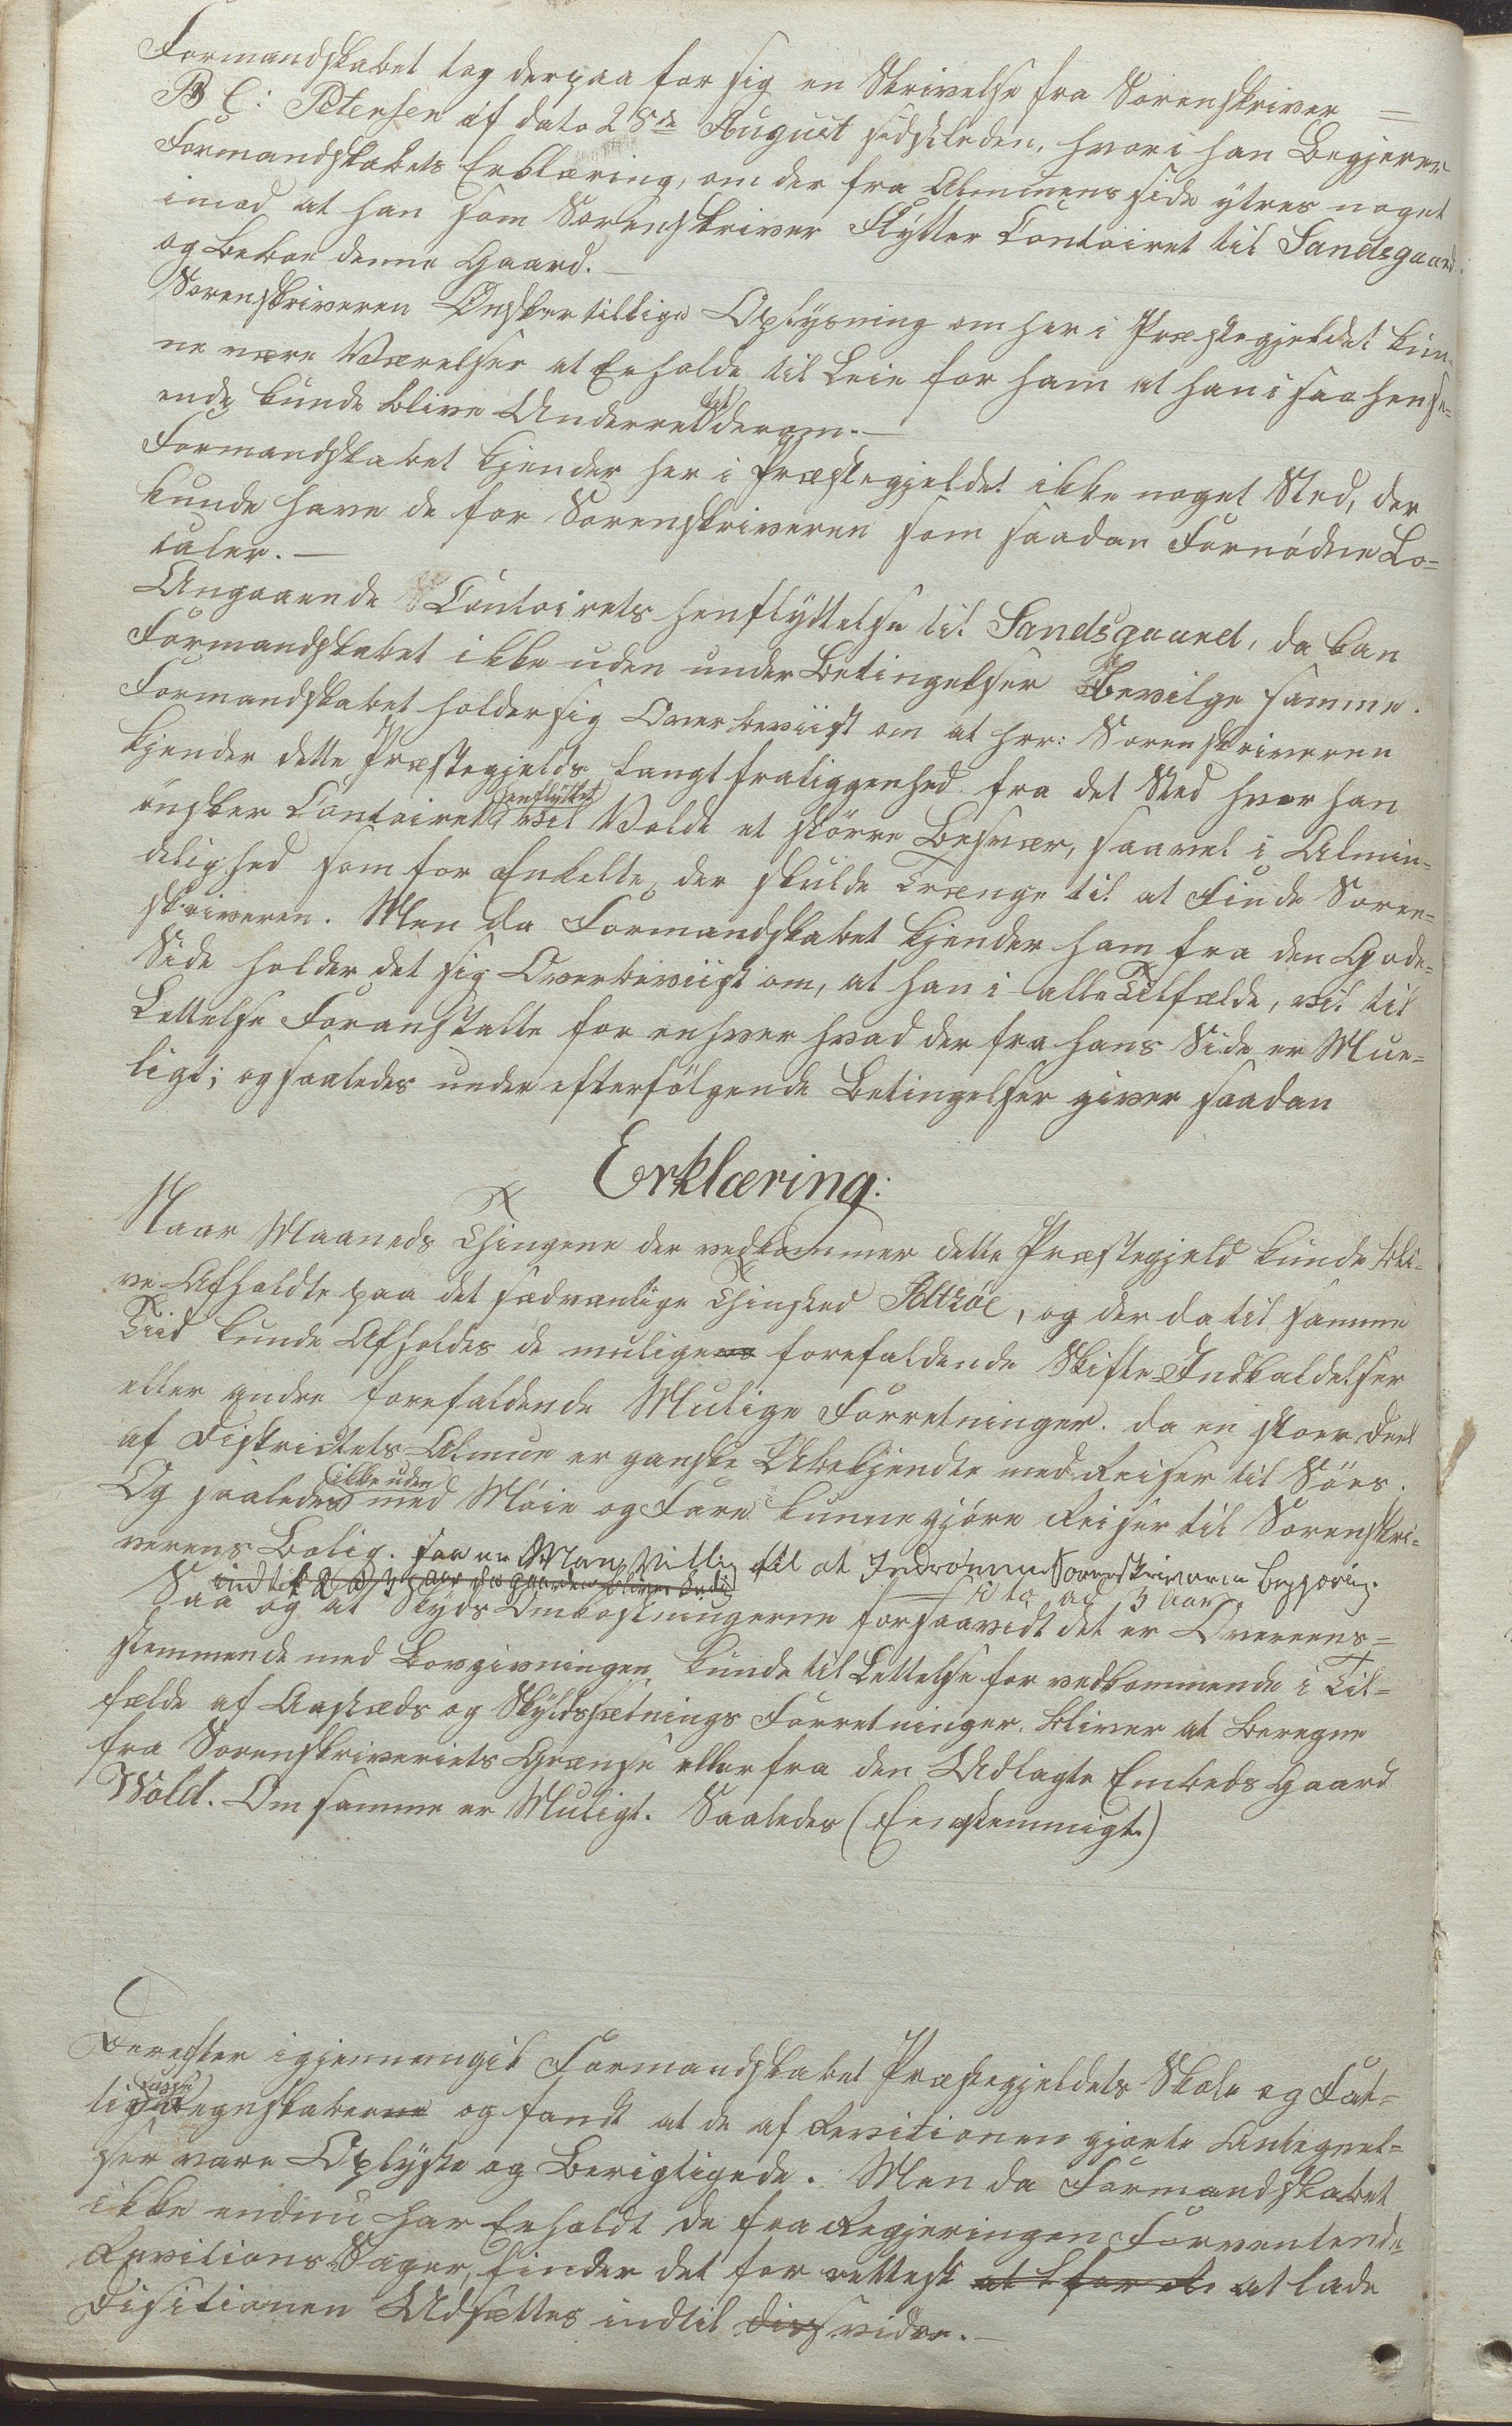 Formandskabet tog derpaa for sig en Skrivelse fra Sorenskriver =
B C: Petersen af dato 28de August sidstleden, hvori han Begjerer
Formandskabets Erklæring, om der fra Almuens side ytres noget
imod at han som Sorenskriver Flytter Contoiret til Sandsgaard
og beboe denne Gaard. —
Sorenskriveren Ønsker tillige Oplysning om her i Præstegjeldet kun-
ne være Værelser at Erholde til Leie for ham at han i saa hense-
ende kunde blive Underrettet derom. —
Formandskabet kjender her i Præstegjeldet ikke noget Sted, der
kunde have de for Sorenskriveren som saadan Fornødne Lo=
caler. —
Angaaende Contoirets henflyttelse til Sandsgaard, da kan
Formandskabet ikke uden under Betingelser Bevilge samme.
Formandskabet holder sig Overbeviist om at Hrr: Sorenskriveren
kjender dette Præstegjelds langt fraliggenhed fra det Sted hvor han
ønsker Contoiret henflyttet vil Volde et større Besvær, saavel i Almin-
delighed som for Enkelte, der skulde Trænge til at Finde Soren=
skriveren. Men da Formandskabet kjender ham fra den Gode=
Side holder det sig Overbeviist om, at han i alle Tilfælde, vil til
Lettelse Foranstalte for enhver hvad der fra hans Side er Mue=
ligt; og saaledes under efterfølgende Betingelser giver saadan
Erklæring:
Naar Maaneds Thingene der vedkommer dette Præstegjeld kunde bli-
ve Afholdte paa det sædvanlige Thinsted Altröe, og der da til samme
Tiid kunde Afholdes de mulige forefaldende Skifte-Indkaldelser
eller andre forefaldende Mulige Forretninger. da en stoer Deel
af Districtets Almue er ganske Ubekjendte med Reiser til Söes.
Og saaledes ikke uden med Möie og Fare kunne gjöre Reiser til Sorenskri-
verens Bolig. saa er Man Villig til at Indrømme Sorenskriveren Begjæring
indtil 2 a 3 aar
i to a 3 aar.
Saa og at Skyds Omkostningerne forsaavidt det er Overeens=
stemmende med Lovgivningen kunde til Lettelse for vedkommende i Til=
fælde af Aasteds og Skyldsætnings Forretninger, bliver at beregne
fra Sorenskriveriets Grænse eller fra den Udlagte Embeds Gaard
Vold. Om samme er Muligt. Saaledes (Eenstemmigt.)
Derefter igjennemgik Formandskabet Præstegjeldets Skole og Fat=
tigkasse Regnskaberne og fandt at de af Revitionen gjorte Antegnel=
ser vare Oplyste og Berigtigede. Men da Formandskabet
ikke endnu har Erholdt de fra Regjeringen Forventende
Revitions Sager, finder det for rettest at lade
Disitionen Udsættes indtil videre. —